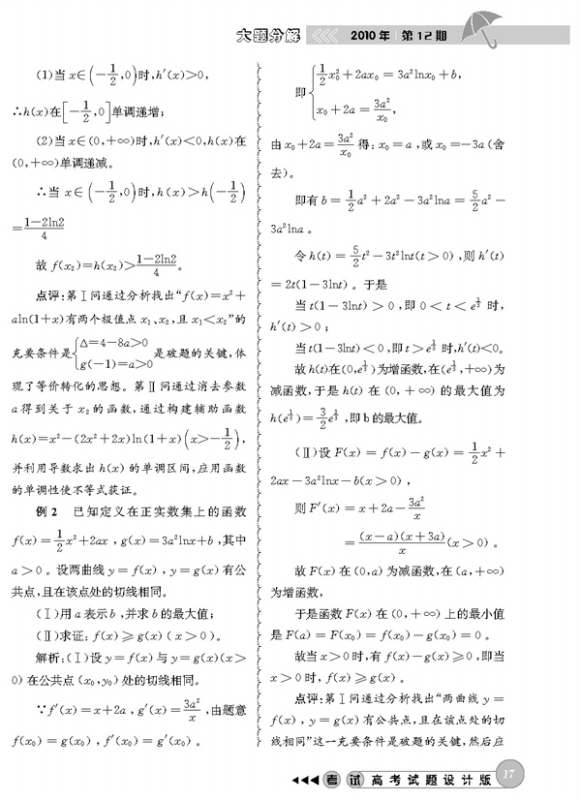 大题分解 2010年 第12期
(1)当 x∈(-1/2,0)时,h′(x)>0,
∴h(x)在[-1/2,0]单调递增;
(2)当 x∈(0,+∞)时,h′(x)<0,h(x)在
(0,+∞)单调递减。
∴当 x∈(-1/2,0)时,h(x)>h(-1/2)
=(1-2ln2)/4
故 f(x₂)=h(x₂)>(1-2ln2)/4。
点评:第Ⅰ问通过分析找出“f(x)=x²+
aln(1+x)有两个极值点 x₁、x₂,且 x₁<x₂”的
充要条件是{Δ=4-8a>0
g(-1)=a>0 是破题的关键,体
现了等价转化的思想。第Ⅱ问通过消去参数
a 得到关于 x₂ 的函数,通过构建辅助函数
h(x)=x²-(2x²+2x)ln(1+x)(x>-1/2),
并利用导数求出 h(x) 的单调区间,应用函数
的单调性使不等式获证。
例2 已知定义在正实数集上的函数
f(x)=1/2x²+2ax,g(x)=3a²lnx+b,其中
a>0。设两曲线 y=f(x),y=g(x)有公
共点,且在该点处的切线相同。
(Ⅰ)用 a 表示 b,并求 b 的最大值;
(Ⅱ)求证:f(x)≥g(x)(x>0)。
解析:(Ⅰ)设 y=f(x)与 y=g(x)(x>
0)在公共点(x₀,y₀)处的切线相同。
∵f′(x)=x+2a,g′(x)=3a²/x,由题意
f(x₀)=g(x₀),f′(x₀)=g′(x₀)。
即{1/2x₀²+2ax₀=3a²lnx₀+b,
x₀+2a=3a²/x₀,
由 x₀+2a=3a²/x₀ 得:x₀=a,或 x₀=-3a(舍
去)。
即有 b=1/2a²+2a²-3a²lna=5/2a²-
3a²lna。
令 h(t)=5/2t²-3t²lnt(t>0),则 h′(t)
=2t(1-3lnt)。于是
当 t(1-3lnt)>0,即 0<t<e^(1/3) 时,
h′(t)>0;
当 t(1-3lnt)<0,即 t>e^(1/3) 时,h′(t)<0。
故 h(t)在(0,e^(1/3))为增函数,在(e^(1/3),+∞)为
减函数,于是 h(t) 在 (0,+∞) 的最大值为
h(e^(1/3))=3/2e^(2/3),即 b 的最大值。
(Ⅱ)设 F(x)=f(x)-g(x)=1/2x²+
2ax-3a²lnx-b(x>0),
则 F′(x)=x+2a-3a²/x
=(x-a)(x+3a)/x(x>0)。
故 F(x)在(0,a)为减函数,在(a,+∞)
为增函数,
于是函数 F(x)在(0,+∞)上的最小值
是 F(a)=F(x₀)=f(x₀)-g(x₀)=0。
故当 x>0时,有 f(x)-g(x)≥0,即当
x>0时,f(x)≥g(x)。
点评:第Ⅰ问通过分析找出“两曲线 y=
f(x),y=g(x)有公共点,且在该点处的切
线相同”这一充要条件是破题的关键,然后应
考试 高考试题设计版 17